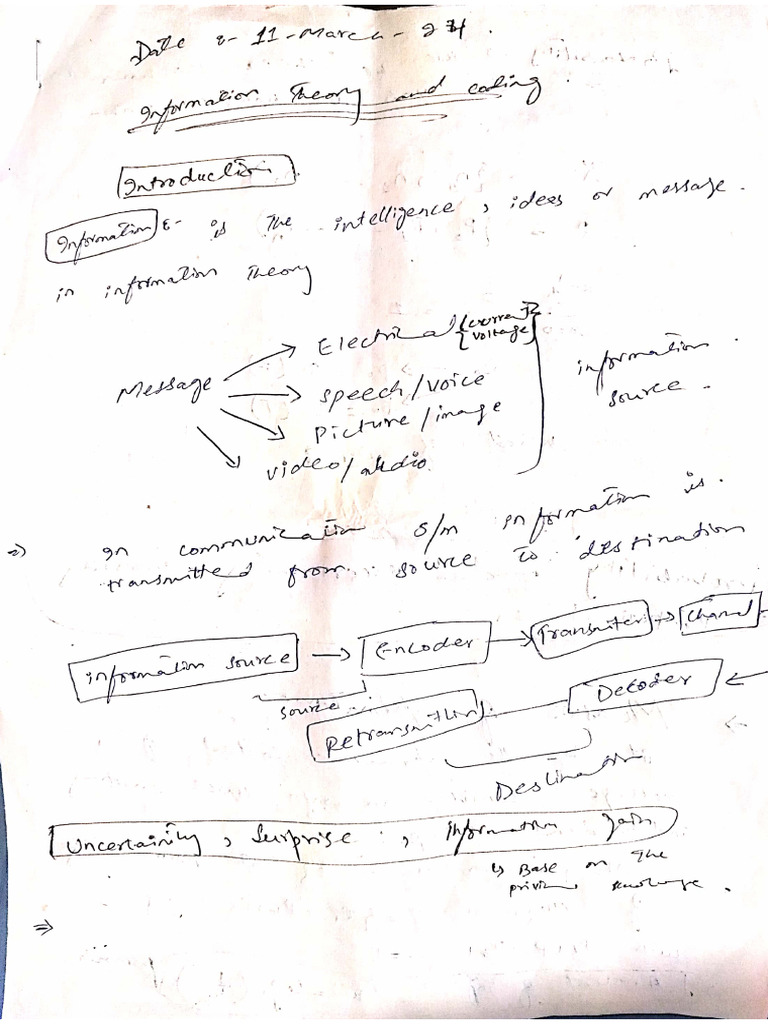 Date :- 11-March-24.
Information Theory and coding.
Introduction
Information :- is the intelligence, ideas or message.
in information Theory
Message
Electrical {current
voltage}
speech/voice
Picture/image
video/audio
information
source.
⇒ In communication s/m information is.
transmitted from source to destination
information source → Encoder → Transmiter → Channel
source
Decoder
Destination
Uncertainity, Surprise, Information gain
↳ Base on the
⇒